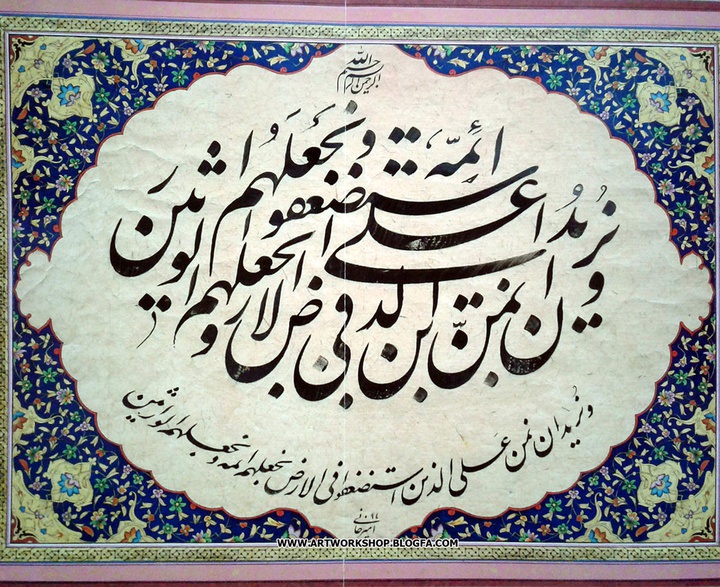 بسم الله الرحمن الرحیم
و نُریدُ ان نمنَّ علی الذین استضعفوا فی الارض و نجعلهم ائمّة و نجعلهم الوارثین
و نرید ان نمن علی الذین استضعفوا فی الارض نجعلهم ائمه و نجعلهم الوارثین
WWW.ARTWORKSHOP.BLOGFA.COM